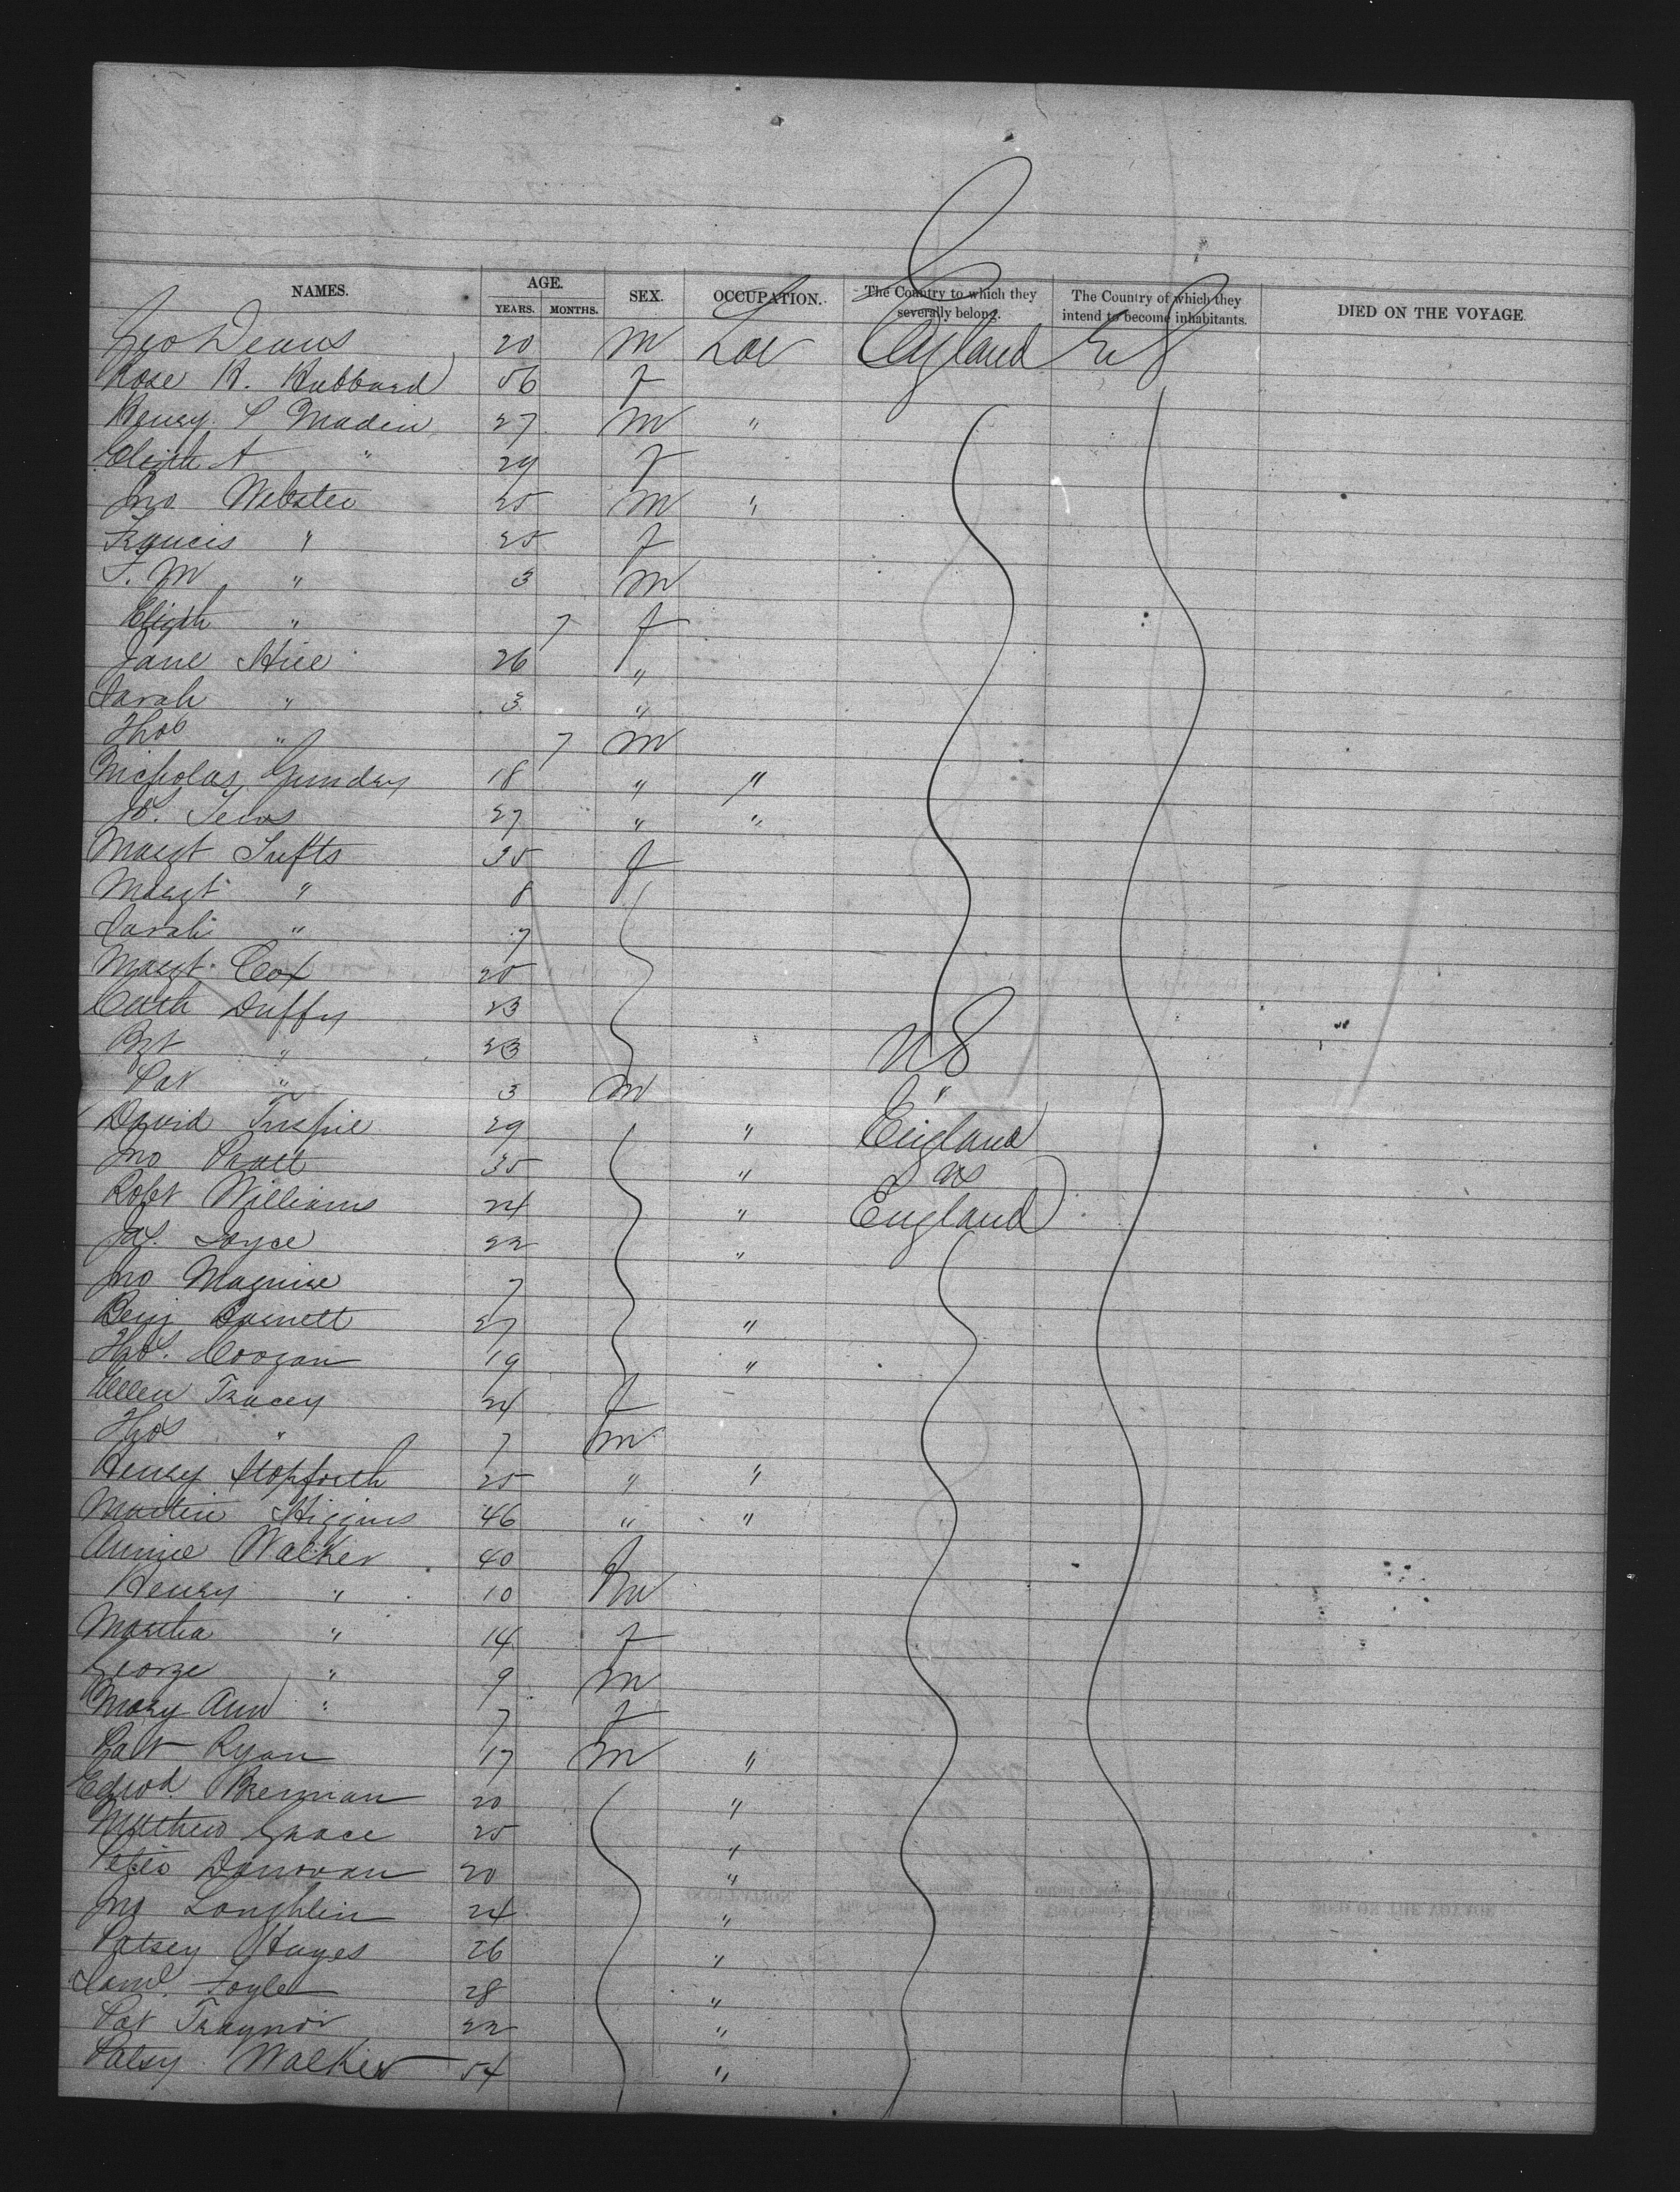 NAMES. AGE. YEARS. MONTHS. SEX. OCCUPATION. The Country to which they severally belong. The Country of which they intend to become inhabitants. DIED ON THE VOYAGE.
Geo Deans 20 m Lae England U S
Rose H. Hubbard 56 f
Henry S Madin 27 m "
Elizth A " 29 f
Jno Webster 25 m "
Francis " 25 f
F. M " 3 m
Elizth " 7 f
Jane Hill 26 "
Sarah " 3 "
Thos " 7 m
Nicholas Gundry 18 " "
27 " "
Margt Tufts 35 f
Margt " 8
Sarah " 7
Margt Cox 20
Cath Duffy 23
Bgt " 23 U S
Pat " 3 m "
David 29 " England
Jno Pratt 35 " U S
Robt Williams 24 " England
Jas. Joyce 22 "
Jno Maguire 7
Benj Barnett 27 "
Thos. Coogan 19 "
Ellen Tracey 24 f
Thos " 7 m
Henry Stopforth 25 " "
Martin Higgins 46 " "
Annie Walker 40 f
Henry " 10 m
Martha " 14 f
George " 9 m
Mary Ann " 7 f
Patt Ryan 17 m "
Edwd. Brennan 20 "
Matthew Grace 25 "
Peter Donovan 20 "
Jno Loughlin 24 "
Patsey Hayes 26 "
Saml. 28 "
Pat Traynor 22 "
Patsy Walker 54 "